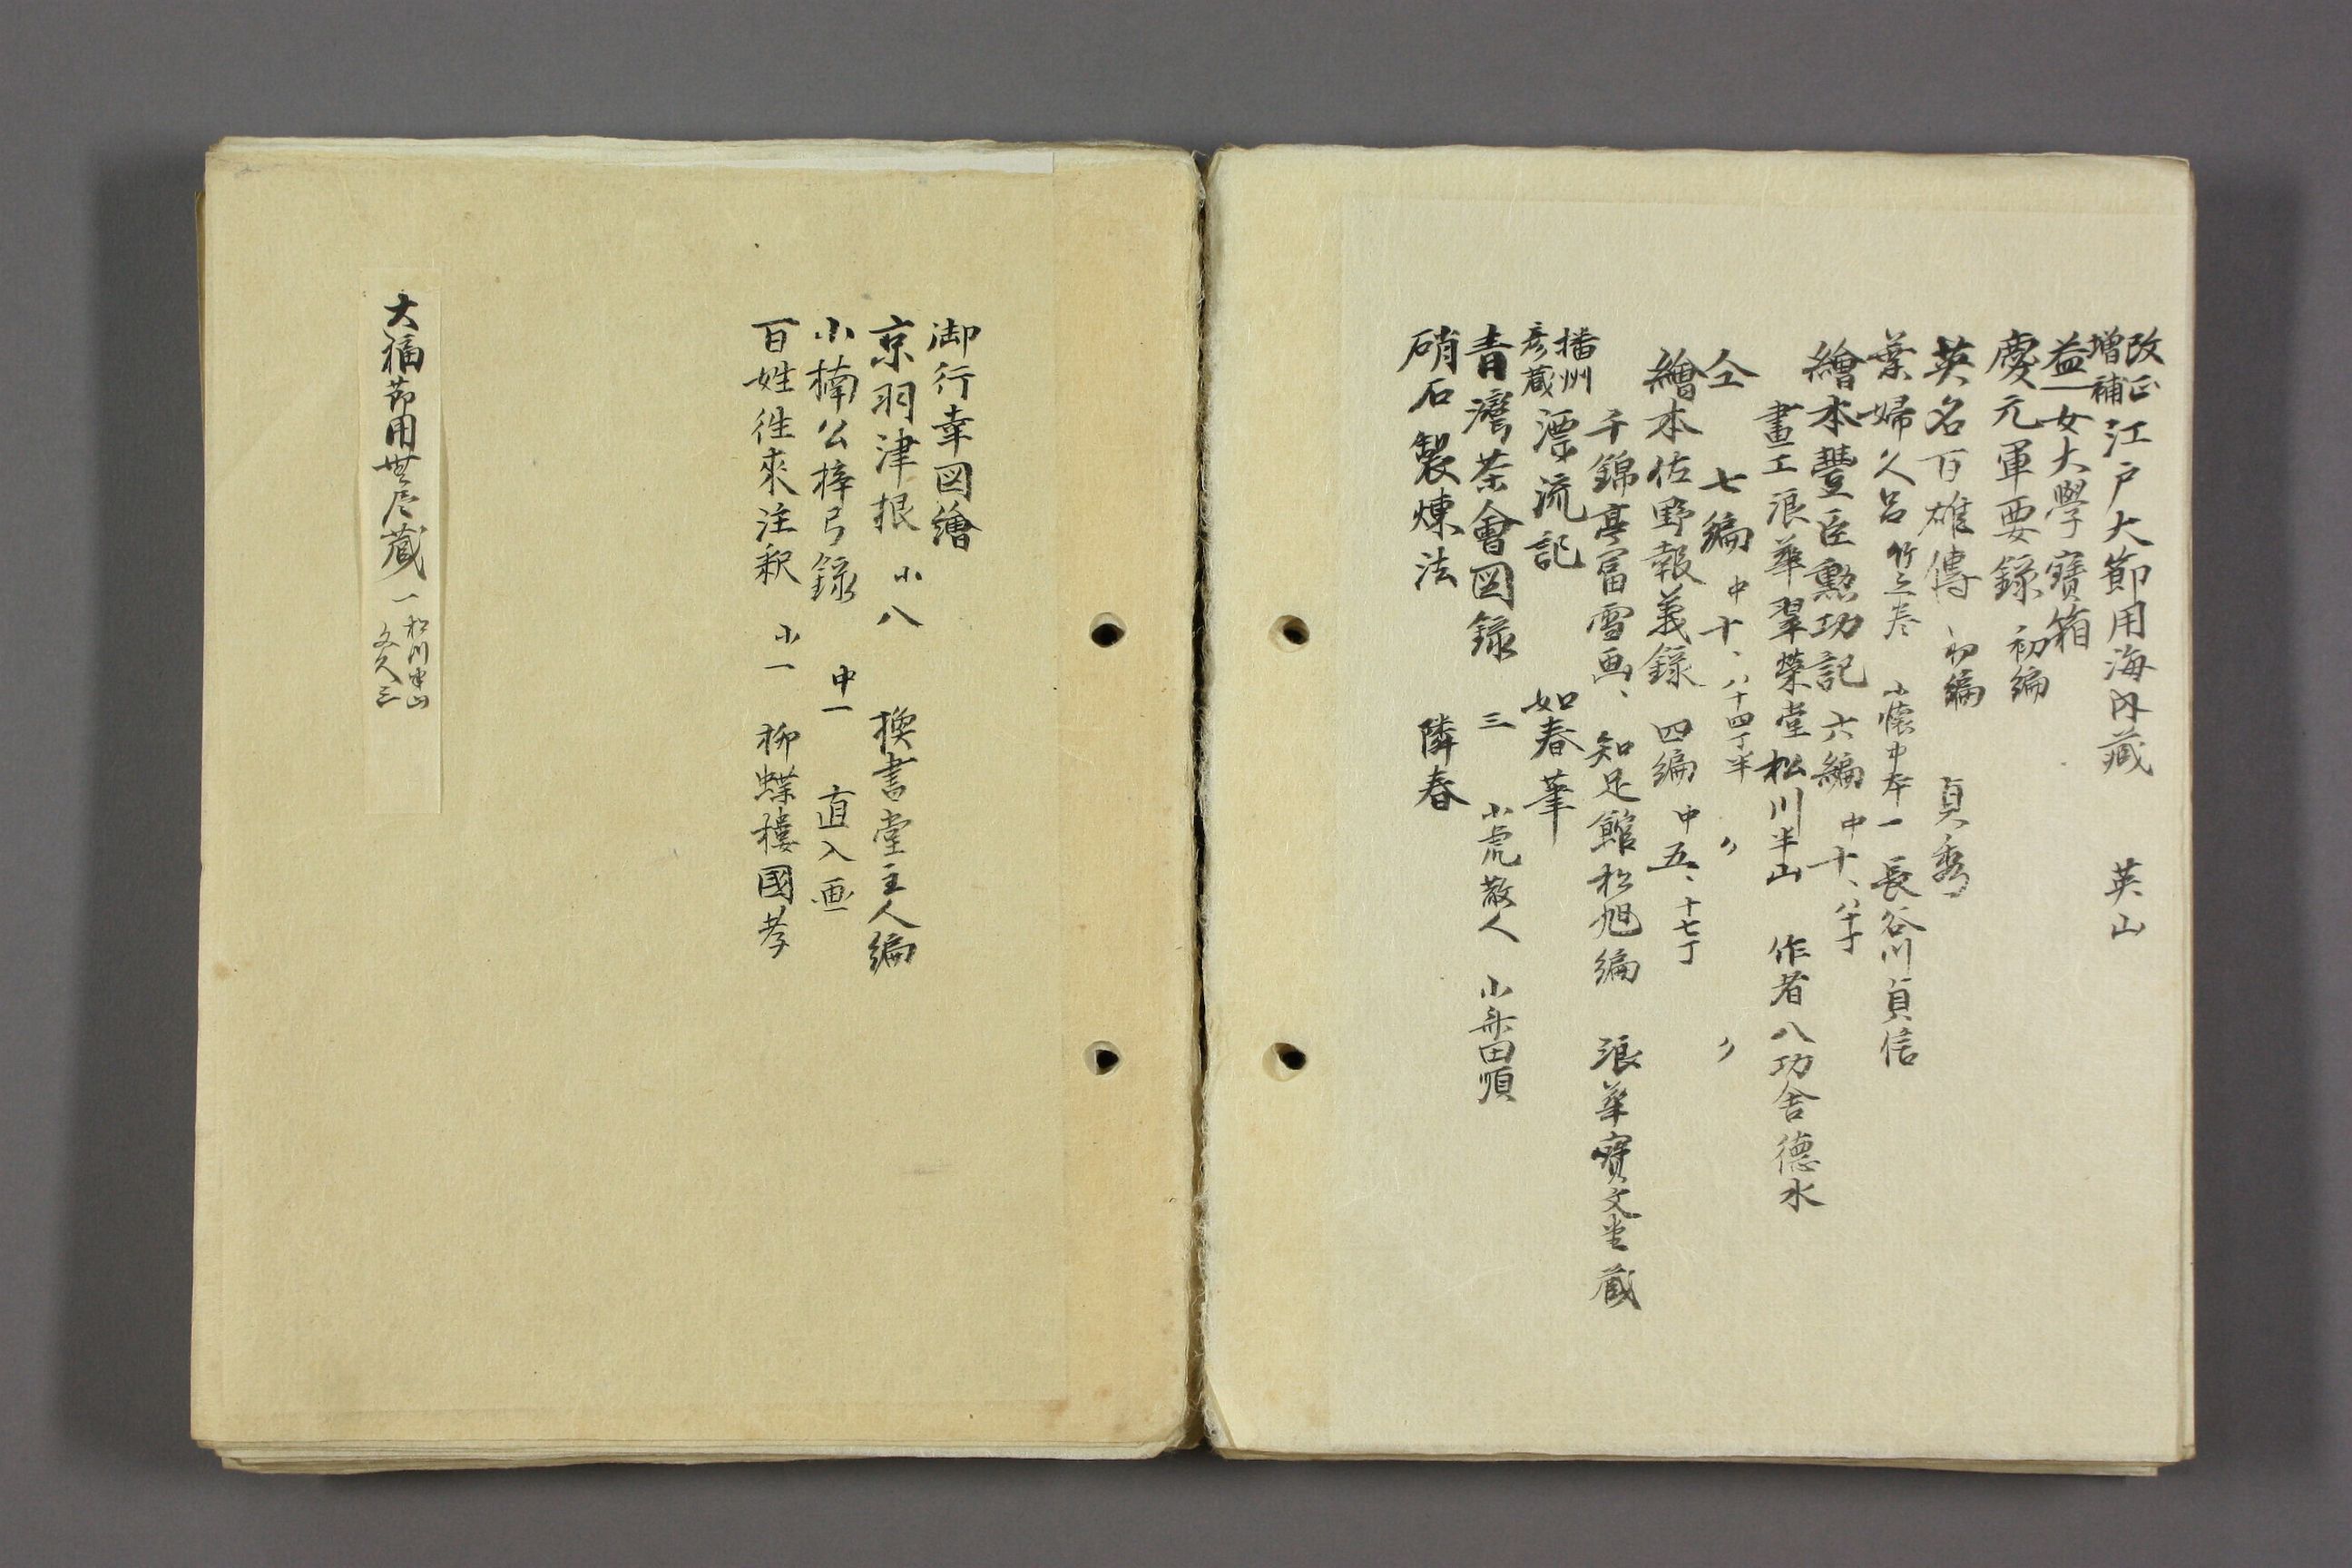 改正増補江戸大節用海内蔵 英山
益女大學寶箱
慶元軍要録 初編
英名百雄傳 初編 貞秀
葉婦久呂 竹之巻 小懐中本一 長谷川貞信
繪本豐臣勲功記 六編 中十、八十丁
畫工浪華翠榮堂松川半山 作者八功舎德水
仝 七編 中十、八十四丁半 〃 〃
繪本佐野報義録 四編 中五、十七丁
千錦亭富雪画、知足館松旭編 浪華寳文堂蔵
播州彦蔵漂流記 如春筆
青灣茶會図録 三 小虎散人 小田順
硝石製煉法 隣春
御行幸図繪
京羽津根 小八 換書堂主人編
小楠公梓弓録 中一 直入画
百姓徃來注釈 小一 柳蝶樓國孝
大福節用無尽蔵 一 松川半山 文久三